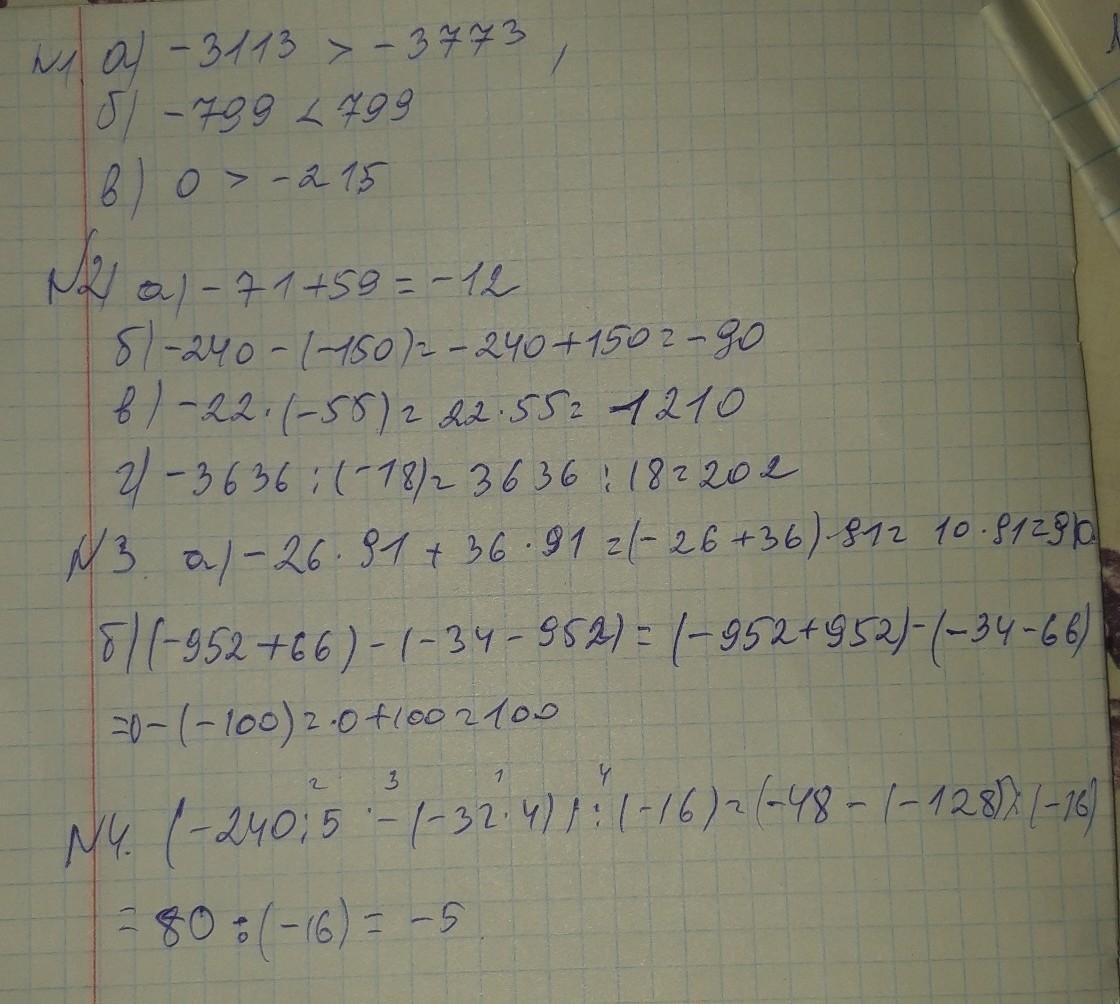 №1 а) -3113 > -3773,
б) -799 < 799
в) 0 > -215
№2 а) -71+59 = -12
б) -240 - (-150) = -240+150 = -90
в) -22·(-55) = 22·55 = 1210
г) -3636 : (-18) = 3636 : 18 = 202
№3. а) -26·91 + 36·91 = (-26+36)·91 = 10·91 = 910
б) (-952+66) - (-34-952) = (-952+952) - (-34-66)
=0-(-100) = 0+100 = 100
2 3 1 4
№4. (-240:5 - (-32·4)) : (-16) = (-48 - (-128)) : (-16)
= 80 : (-16) = -5